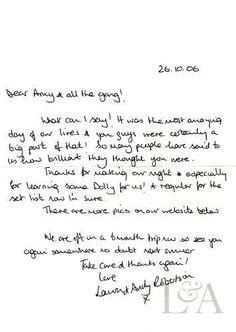 26.10.06
Dear Amy & all the gang!
What can I say! It was the most amazing
day of our lives & you guys were certainly a
big part of that! So many people have said to
us how brilliant they thought you were.
Thanks for making our night & especially
for learning some Dolly for us! A regular for the
set list now I'm sure.
There are more pics on our website below
We are off on a 6 month trip now so see you
again somewhere no doubt next summer
Take care & thanks again!
Love
Laura & Andy Robertson
X
L&A